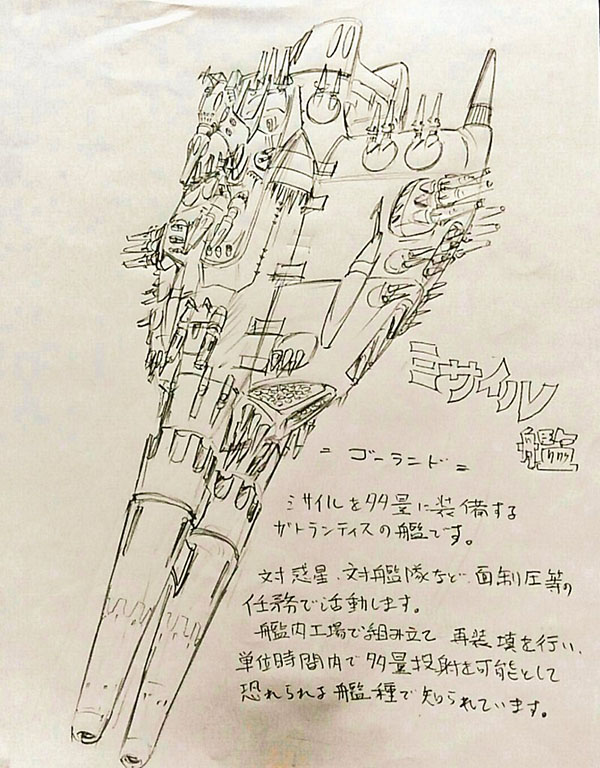 ミサイル
艦
=ゴーランド=
ミサイルを多量に装備する
ガトランティスの艦です。
対惑星、対艦隊など、面制圧等の
任務で活動します。
艦内工場で組み立て 再装填を行い、
単位時間内で多量投射を可能として
恐れられる艦種で知られています。